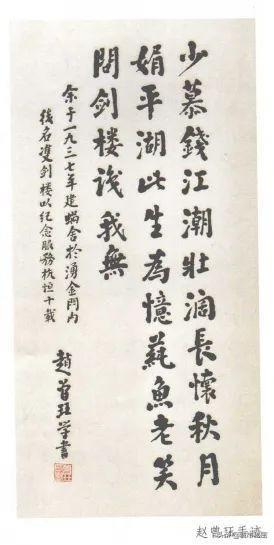 少慕錢江潮壯闊長懷秋月
娟平湖此生為憶蒓魚老笑
問剑楼識我無
余于一九三七年建蝸舍於湧金門内
後名雙剑楼以纪念服務杭垣十载
趙曾珏学書
赵曾珏手迹